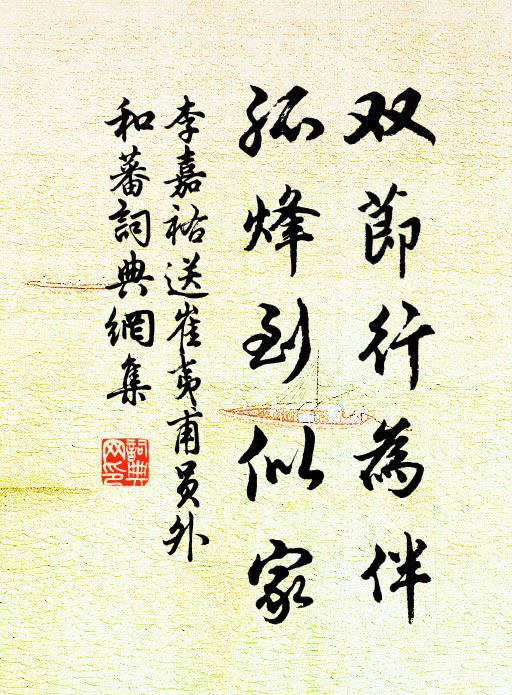 双節行為伴
孤烽到似家
李嘉祐送崔夷甫員外
和蕃詞典網集
詞典
网印